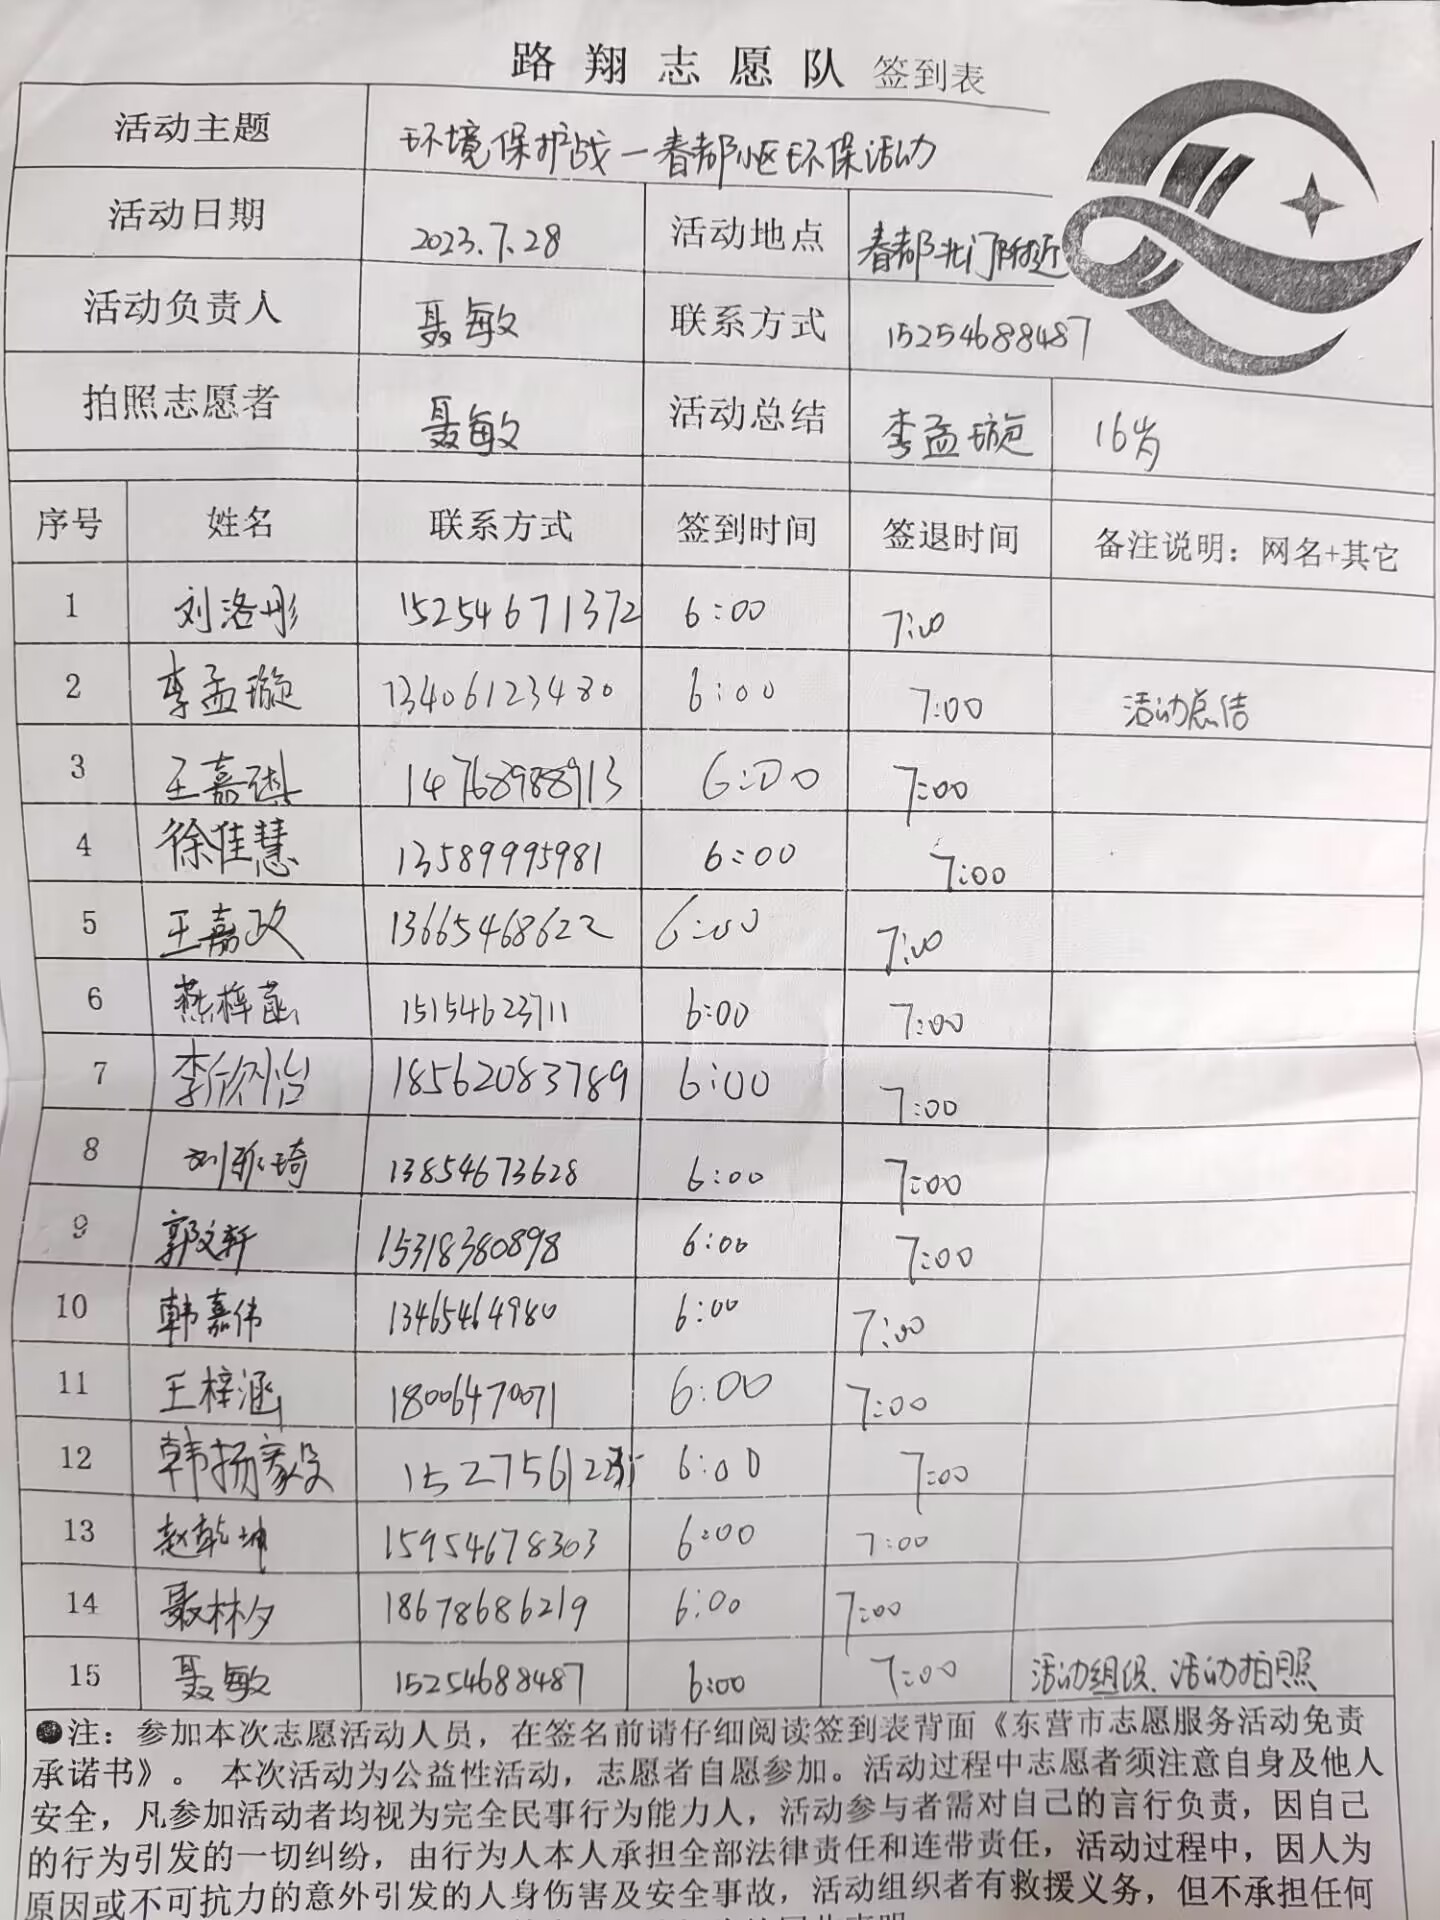 路翔志愿队 签到表
活动主题 环境保护战—春都小区环保活动
活动日期 2023.7.28 活动地点 春都北门附近
活动负责人 聂敏 联系方式 15254688487
拍照志愿者 聂敏 活动总结 李孟璇 16岁
序号 姓名 联系方式 签到时间 签退时间 备注说明：网名+其它
1 刘洛彤 15254671372 6:00 7:00
2 李孟璇 13406123480 6:00 7:00 活动总结
3 王嘉祺 14768988913 6:00 7:00
4 徐佳慧 13589995981 6:00 7:00
5 王嘉政 13665468622 6:00 7:00
6 燕梓菡 15154623711 6:00 7:00
7 李欣怡 18562083789 6:00 7:00
8 刘雅琦 13854673628 6:00 7:00
9 郭文轩 15318380898 6:00 7:00
10 韩嘉伟 13465464980 6:00 7:00
11 王梓涵 18006470071 6:00 7:00
12 韩扬 6:00 7:00
13 赵乾坤 15954678303 6:00 7:00
14 聂林夕 18678686219 6:00 7:00
15 聂敏 15254688487 6:00 7:00 活动组织、活动拍照
●注：参加本次志愿活动人员，在签名前请仔细阅读签到表背面《东营市志愿服务活动免责
承诺书》。 本次活动为公益性活动，志愿者自愿参加。活动过程中志愿者须注意自身及他人
安全，凡参加活动者均视为完全民事行为能力人，活动参与者需对自己的言行负责，因自己
的行为引发的一切纠纷，由行为人本人承担全部法律责任和连带责任，活动过程中，因人为
原因或不可抗力的意外引发的人身伤害及安全事故，活动组织者有救援义务，但不承担任何